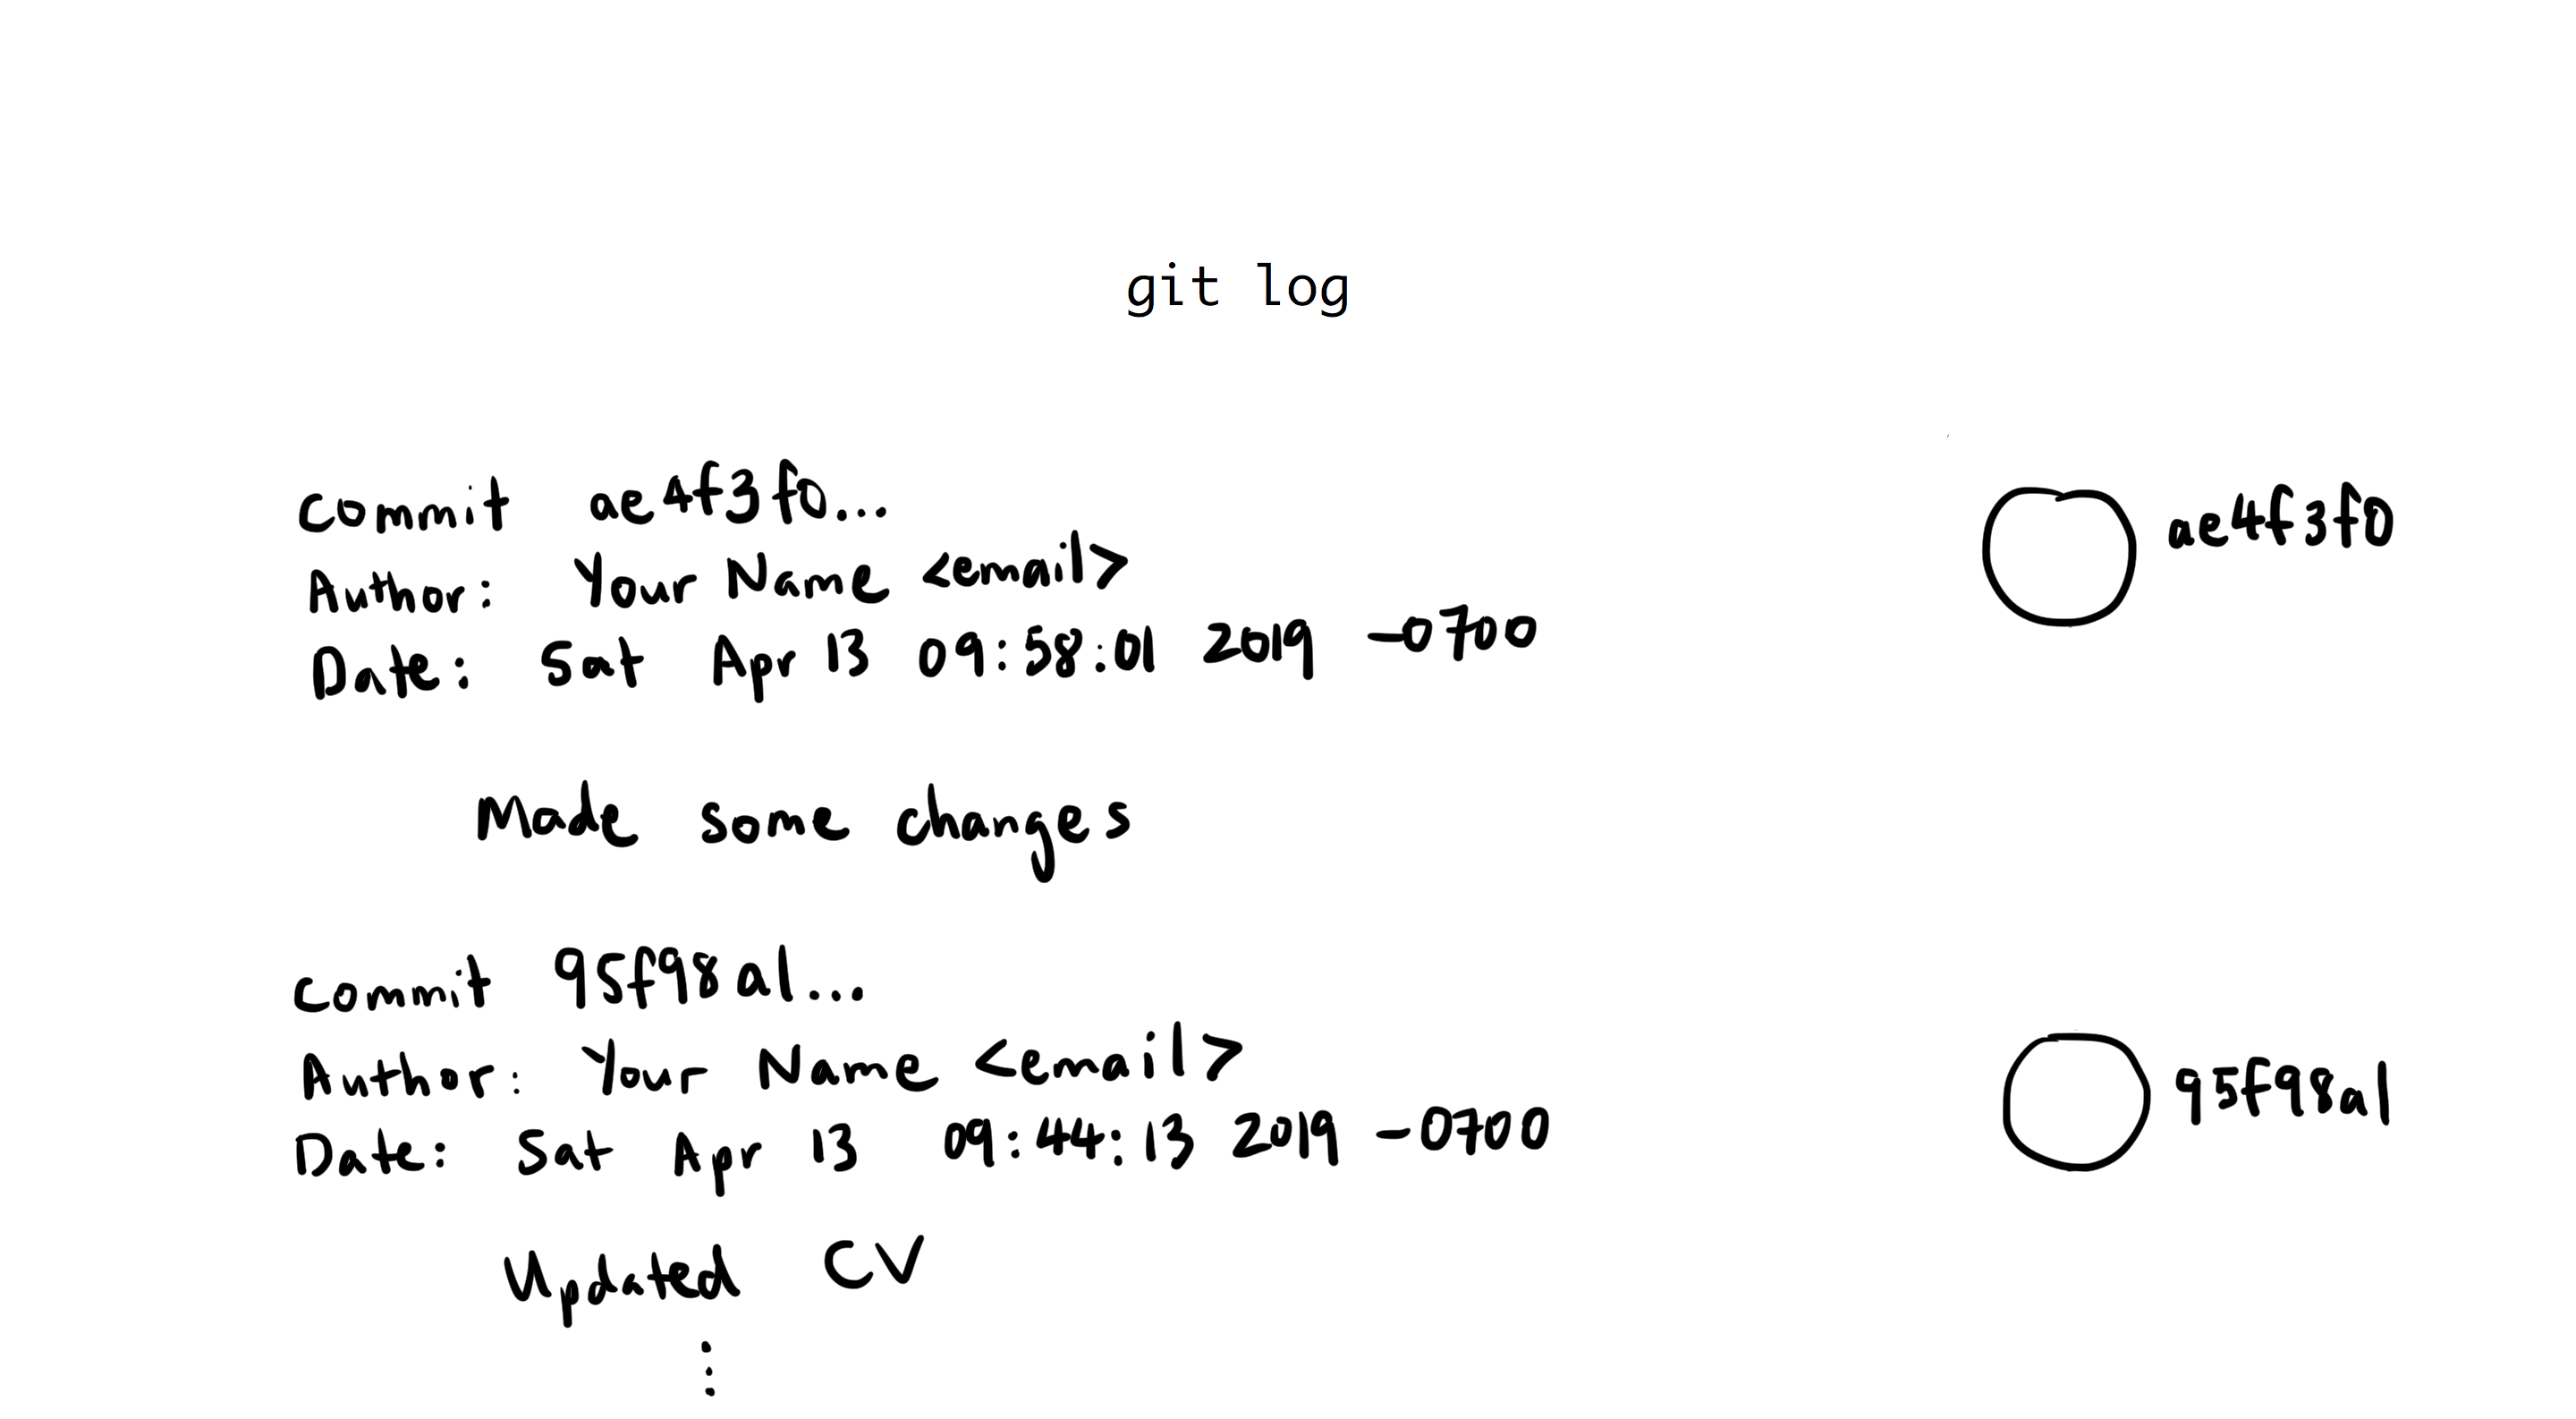 git log
commit ae4f3f0...
ae4f3f0
Author: Your Name <email>
Date: Sat Apr 13 09:58:01 2019 -0700
Made some changes
commit 95f98a1...
Author: Your Name <email>
95f98a1
Date: Sat Apr 13 09:44:13 2019 -0700
Updated CV
⋮